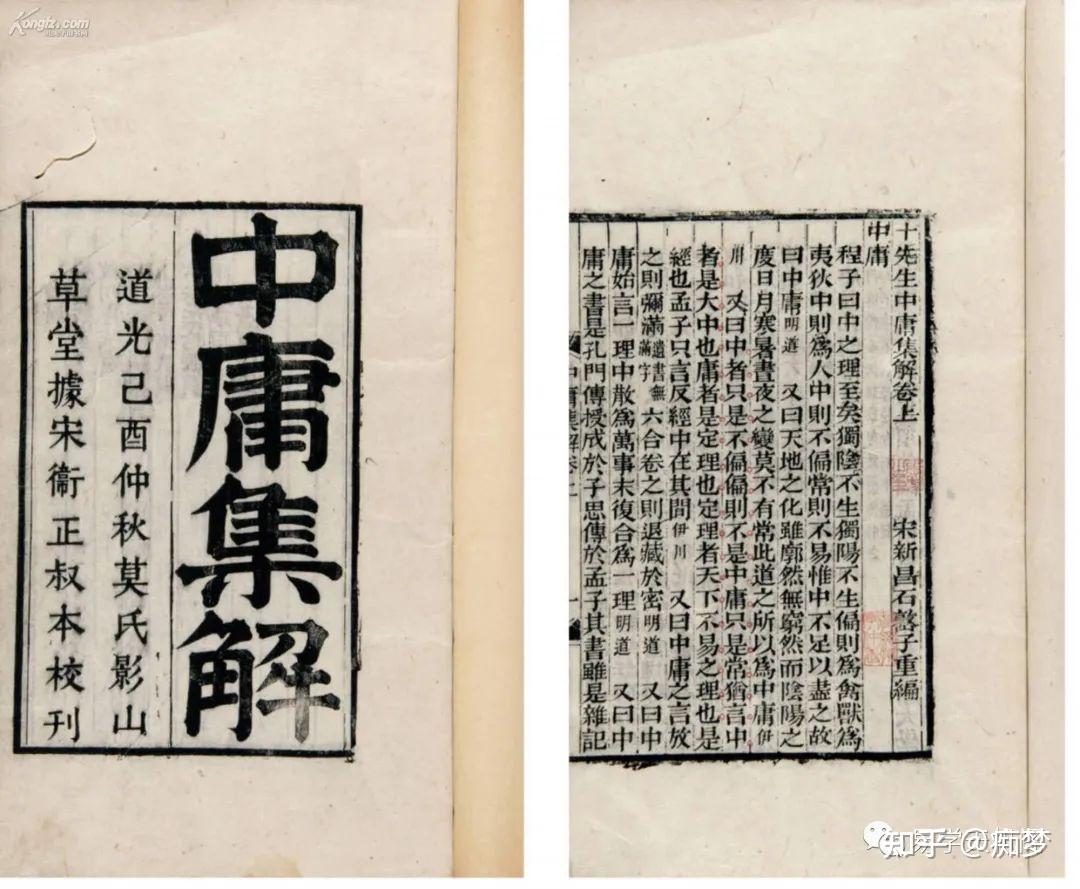 Kongfz.com
中庸集解
道光己酉仲秋莫氏影山
草堂據宋衞正叔本校刊
十先生中庸集解卷上 宋新昌石𡼖子重編
中庸
程子曰中之理至矣獨陰不生獨陽不生偏則爲禽獸爲
夷狄中則爲人中則不偏常則不易惟中不足以盡之故
曰中庸明道 又曰天地之化雖廓然無窮然而陰陽之
度日月寒暑晝夜之變莫不有常此道之所以爲中庸伊
川 又曰中者只是不偏偏則不是中庸只是常猶言中
者是大中也庸者是定理也定理者天下不易之理也是
經也孟子只言反經中在其間伊川 又曰中庸之言放
之則彌滿遺書無滿字六合卷之則退藏於密明道 又曰中
庸始言一理中散爲萬事末復合爲一理明道 又曰中
庸之書是孔門傳授成於子思傳於孟子其書雖是雜記
中庸集解卷上
知乎 @痴梦